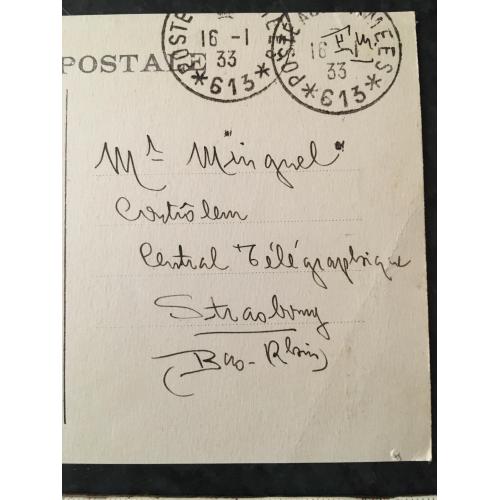 POSTE AUX ARMEES
16 -1
33
*613*
POSTE AUX ARMEES
16
33
*613*
POSTALE
Mr Minguel
Contrôleur
Central Télégraphique
Strasbourg
(Bas-Rhin)